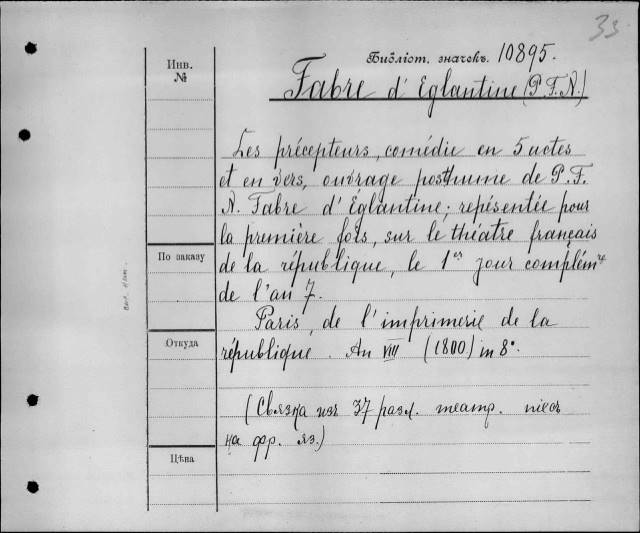 33
Библіот. значекъ. 10895.
Инв.
№
Fabre d' Eglantine (P.F.N.)
Les précepteurs, comédie en 5 actes
et en vers, ouvrage posthume de P.F.
N. Fabre d' Églantine; représentée pour
la première fois, sur le théatre français
По заказу
de la république, le 1er jour complém.re
de l'an 7.
Paris, de l'imprimerie de la
Откуда
république. An VIII (1800) in 8°.
(Связка изъ 37 разл. театр. пiесъ
на фр. яз.)
Цѣна